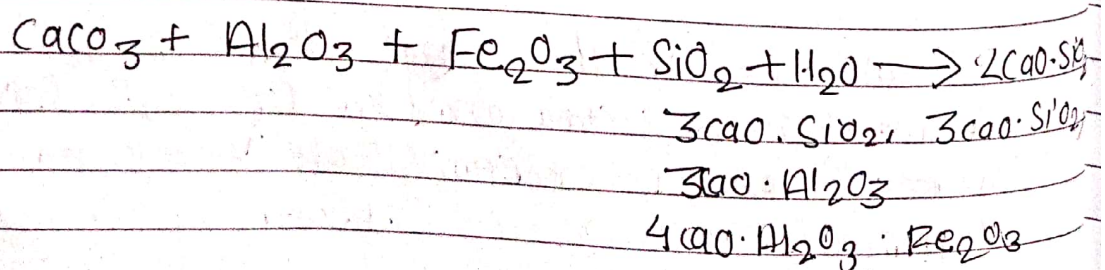 CaCO₃ + Al₂O₃ + Fe₂O₃ + SiO₂ + H₂O → 2CaO.SiO₂
3CaO.SiO₂, 3CaO.SiO₂
3CaO.Al₂O₃
4CaO.Al₂O₃.Fe₂O₃